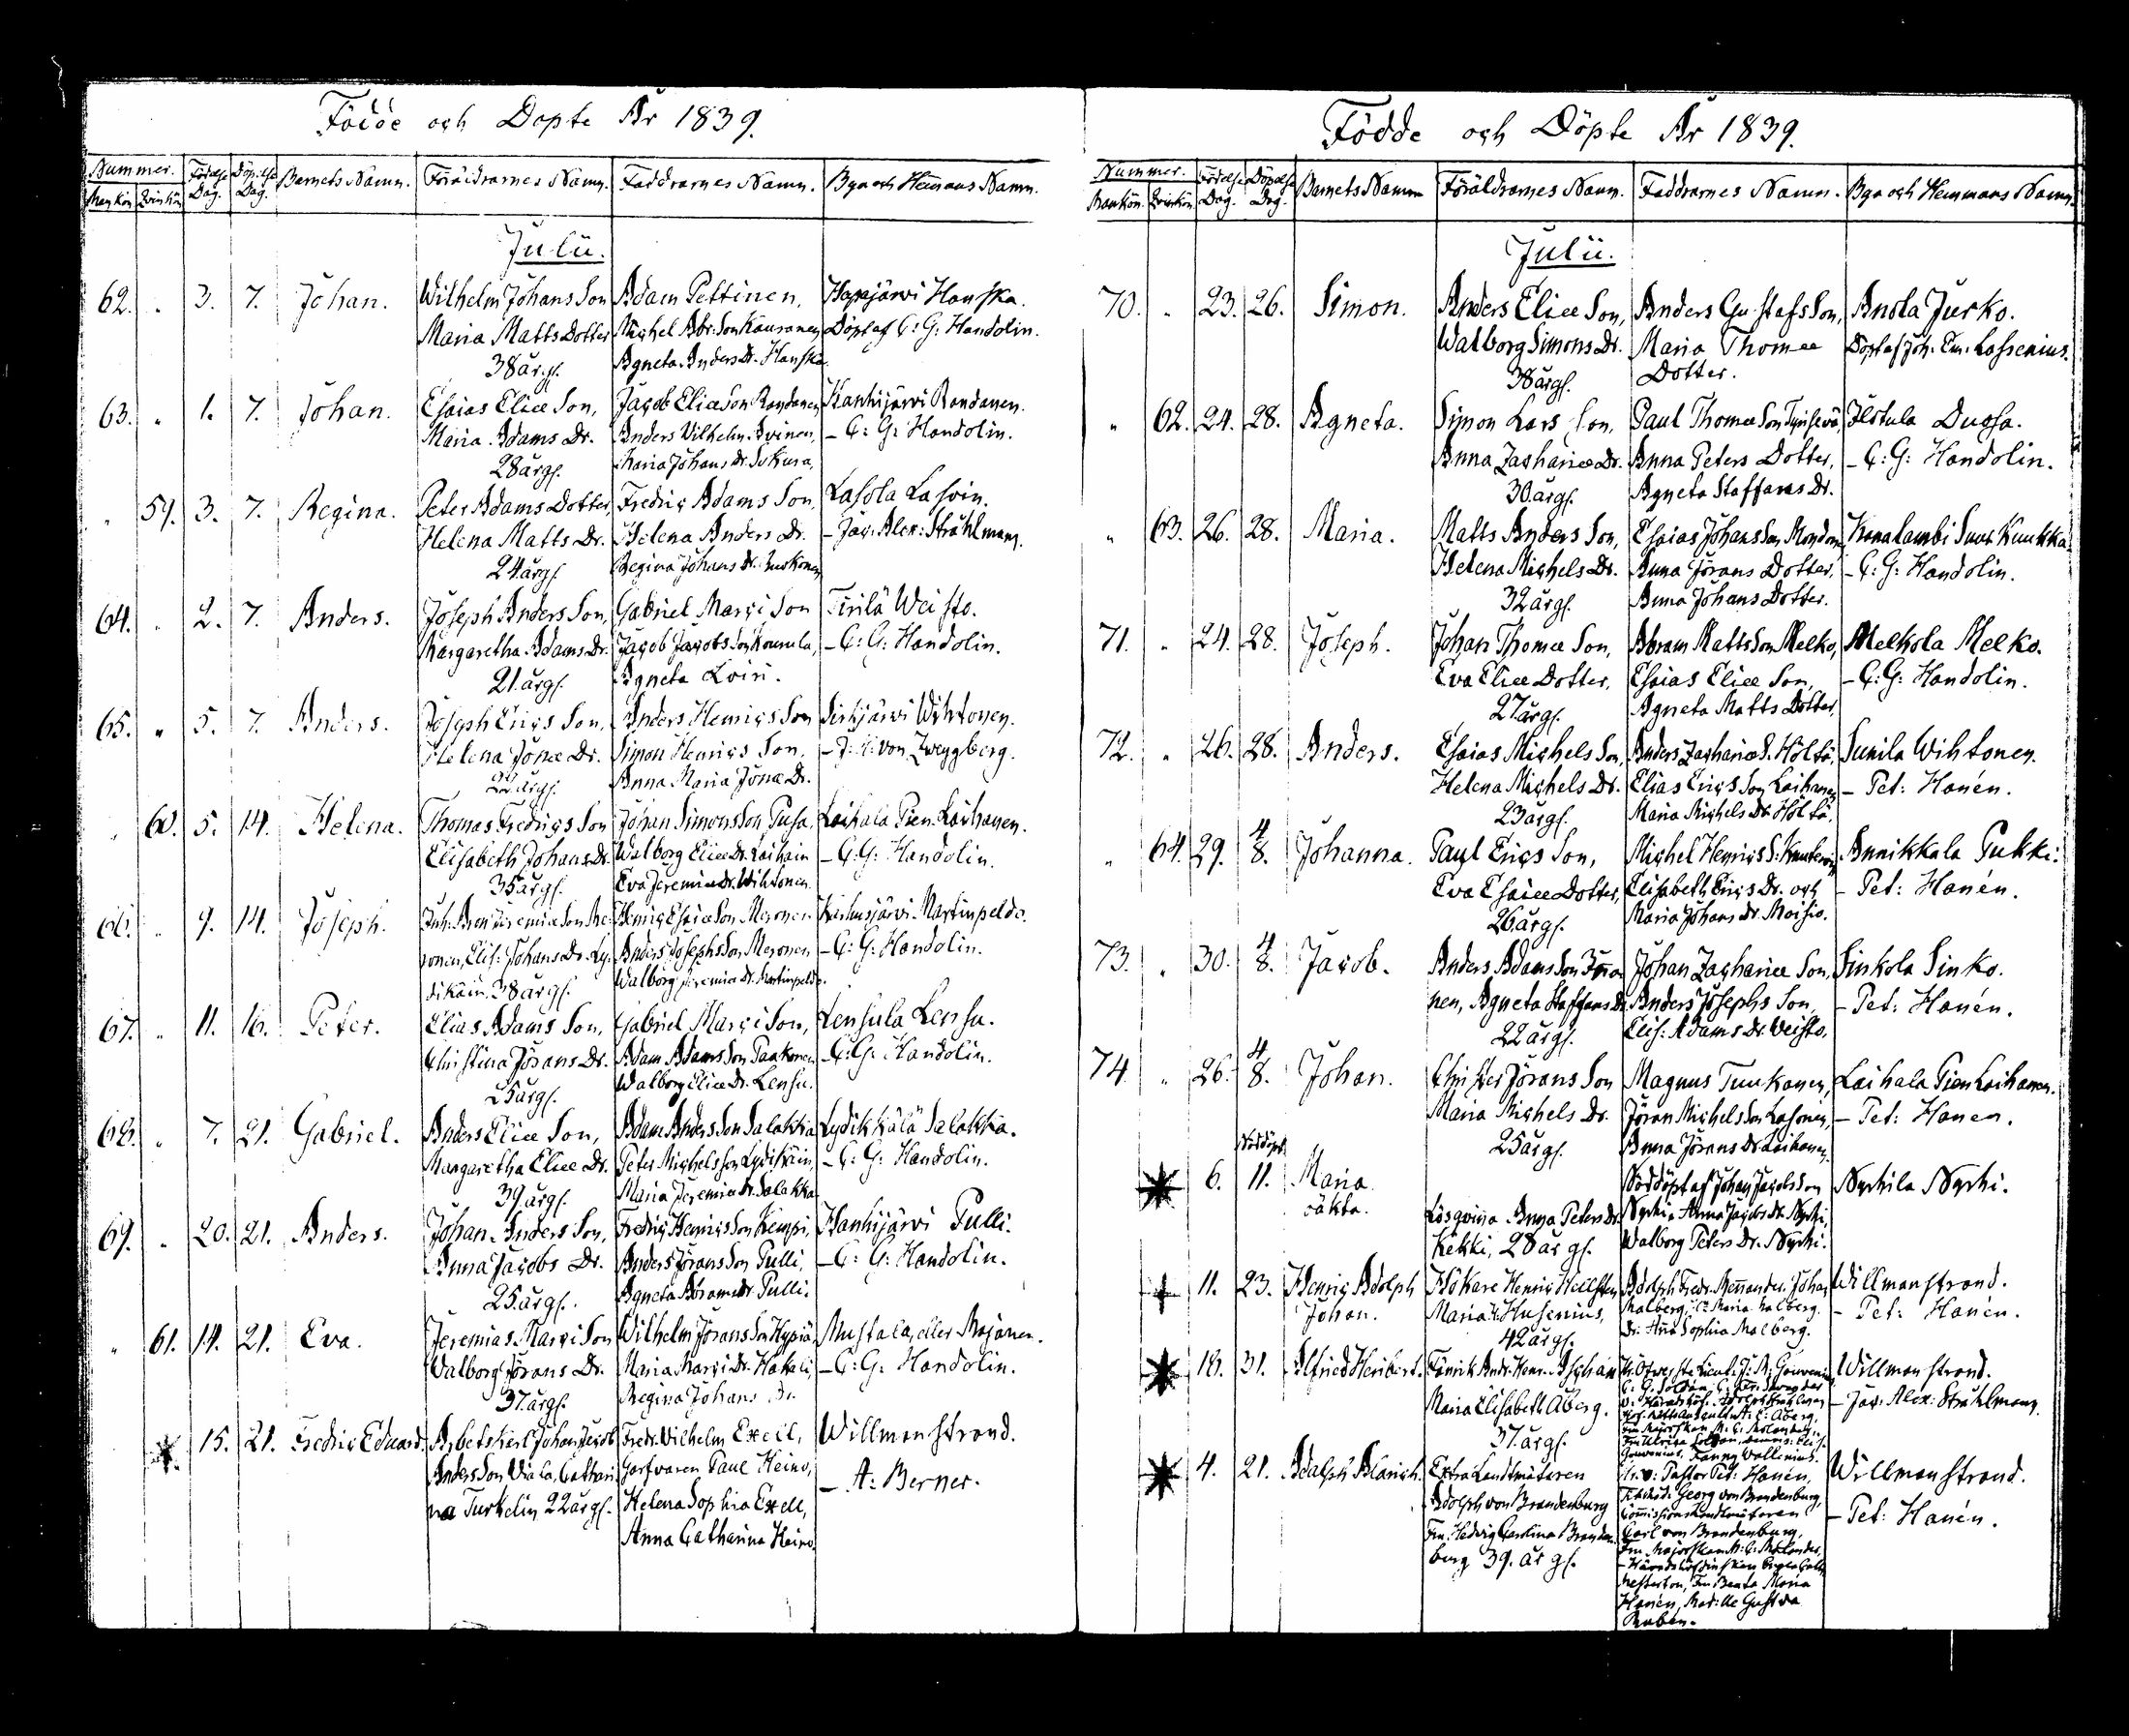 Födde och Döpte År 1839.
Nummer. Födelse Dag. Döpelse Dag. Barnets Namn. Föräldrarnes Namn. Faddrarnes Namn. Bya och Hemmans Namn.
Mankön Qvinkön
Julii.
62. " 3. 7. Johan. Wilhelm Johans Son Adam Pettinen, Hapajärvi Hanska.
Maria Matts Dotter Michel Abr: Son Kauranen Döpt af C: G: Handolin.
38 år gl. Agneta Anders Dr. Hanska.
63. " 1. 7. Johan. Esaias Eliæ Son, Jacob Eliæ Son Rondanen Kanhijärvi Rondanen.
Maria Adams Dr. Anders Vilhelm Avinen, - C: G: Handolin.
28 år gl. Maria Johans Dr. Sukura,
" 59. 3. 7. Regina. Peter Adams Dotter, Fredric Adams Son, Lasola Lasoin.
Helena Matts Dr. Helena Anders Dr. - Jac: Alex: Stråhlmann.
24 år gl. Regina Johans Dr.
64. " 2. 7. Anders. Joseph Anders Son, Gabriel Marci Son Tirilä Weisto.
Margaretha Adams Dr. Jacob Jacobs Son Kounula, - C: G: Handolin.
21 år gl. Agneta Loiri.
65. " 5. 7. Anders. Joseph Erics Son, Anders Henrics Son Sirkjärvi Wihtonen.
Helena Jonæ Dr. Simon Henrics Son, - J: H: von Zweygberg.
22 år gl. Anna Maria Jonæ Dr.
" 60. 5. 14. Helena. Thomas Fredrics Son Johan Simons Son Pusa, Laihala Pien Laihanen.
Elisabeth Johans Dr. Walborg Eliæ Dr. Laihain - C: G: Handolin.
35 år gl. Eva Jeremiæ Dr. Wihtonen.
66. " 9. 14. Joseph. Inh: Abr: Jeremiæ Son Me- Henric Esaiæ Son Meronen Karhusjärvi Martinpeldo.
ronen, Elis: Johans Dr. Ly- Anders Josephs Son Meronen - C: G: Handolin.
dikäin. 38 år gl. Walborg Jeremiæ Dr. Martinpeldo.
67. " 11. 16. Peter. Elias Adams Son, Gabriel Marci Son, Lensula Lensu.
Christina Jörans Dr. Adam Adams Son Paakonen - C: G: Handolin.
25 år gl. Walborg Eliæ Dr. Lensu.
68. " 7. 21. Gabriel. Anders Eliæ Son, Adam Anders Son Salakka Lydikkälä Salakka.
Margaretha Eliæ Dr. Peter Michels Son Lydikäin, - C: G: Handolin.
39 år gl. Maria Jeremiæ Dr. Salakka
69. " 20. 21. Anders. Johan Anders Son, Fredric Henrics Son Kemppi, Hanhijärvi Pulli.
Anna Jacobs Dr. Anders Jörans Son Pulli, - C: G: Handolin.
25 år gl. Agneta Abrams Dr. Pulli.
" 61. 14. 21. Eva. Jeremias Marci Son Wilhelm Jörans Son Hypiä, Mustala, eller Majanen.
Walborg Jörans Dr. Maria Marci Dr. Hakali, - C: G: Handolin.
37 år gl. Regina Johans Dr.
15. 21. Fredric Eduard. Arbetskarl Johan Jacob Fredr. Wilhelm Exell, Willmanstrand.
Anders Son Viala, Cathari- Garfvaren Paul Heino, - A: Berner.
na Turkelin 22 år gl. Helena Sophia Exell,
Anna Catharina Heino.
Födde och Döpte År 1839.
Nummer. Födelse Dag. Döpelse Dag. Barnets Namn Föräldrarnes Namn. Faddrarnes Namn. Bya och Hemmans Namn.
Mankön. Qvinkön
Julii.
70. " 23. 26. Simon. Anders Eliæ Son, Anders Gustafs Son, Anola Jurko.
Walborg Simons Dr. Maria Thomæ Döpt af Joh: Em: Lassenius.
38 år gl. Dotter.
" 62. 24. 28. Agneta. Simon Lars Son, Paul Thomæ Son Ilotula Duosa.
Anna Zachariæ Dr. Anna Peters Dotter, - C: G: Handolin.
30 år gl. Agneta Staffans Dr.
" 63. 26. 28. Maria. Matts Anders Son, Esaias Johans Son Kanalambi Suur Kuukka.
Helena Michels Dr. Anna Jörans Dotter, - C: G: Handolin.
32 år gl. Anna Johans Dotter.
71. " 24. 28. Joseph. Johan Thomæ Son, Abram Matts Son Melko, Melkola Melko.
Eva Eliæ Dotter, Esaias Eliæ Son, - C: G: Handolin.
27 år gl. Agneta Matts Dotter,
72. " 26. 28. Anders. Esaias Michels Son, Anders Zachariæ S. Höltä, Sunila Wihtonen.
Helena Michels Dr. Elias Erics Son Laihanen - Pet: Hanén.
23 år gl. Maria Michels Dr. Höltä,
" 64. 29. 4/8. Johanna. Paul Erics Son, Michel Henrics S: Annikkala Pukki.
Eva Esaiæ Dotter, Elisabeth Erics Dr. och - Pet: Hanén.
26 år gl. Maria Johans Dr. Moisio.
73. " 30. 4/8. Jacob. Anders Adams Son Johan Zachariæ Son, Sinkola Sinko.
nen, Agneta Staffans Dr. Anders Josephs Son, - Pet: Hanén.
22 år gl. Elis: Adams Dr. Veisto,
74 " 26. 4/8. Johan. Christer Jörans Son Magnus Tuukanen, Laihala Pien Laihanen.
Maria Michels Dr. Jöran Michels Son Lasonen, - Pet: Hanen.
25 år gl. Anna Jörans Dr. Laihanen.
Nöddöpt
6. 11. Maria Nöddöpt af Johan Jacobs Son Nyrhila Nyrhi.
oäkta. Lösqvinna Anna Peters Dr. Nyrhi, Anna Jacobs Dr. Nyrhi,
Kekki, 28 år gl. Walborg Peters Dr. Nyrhi.
11. 23. Henric Adolph Hökare Henric Hellsten Adolph Fredr. Johan Willmanstrand.
Johan. Maria Husenius, Malberg, Maria Malberg. - Pet: Hanén.
42 år gl. Dr: Anna Sophia Malberg.
18. 31. Alfried Heribert. Fänrik Andr. Henr. Willmanstrand.
Maria Elisabeth Åberg. - Jac: Alex: Stråhlmann.
37 år gl. Fanny Wallenius.
4. 21. Adolph Alarich. Extra Landtmätaren Pastor Pet: Hanén, Willmanstrand.
Adolph von Brandenburg Georg von Brandenburg, - Pet: Hanén.
Fru Hedvig Carolina Branden- Commissions Landtmätaren
burg 39. år gl. Carl von Brandenburg,
Fru Majorskan
Fru Beata Maria
Hanén, Gustava